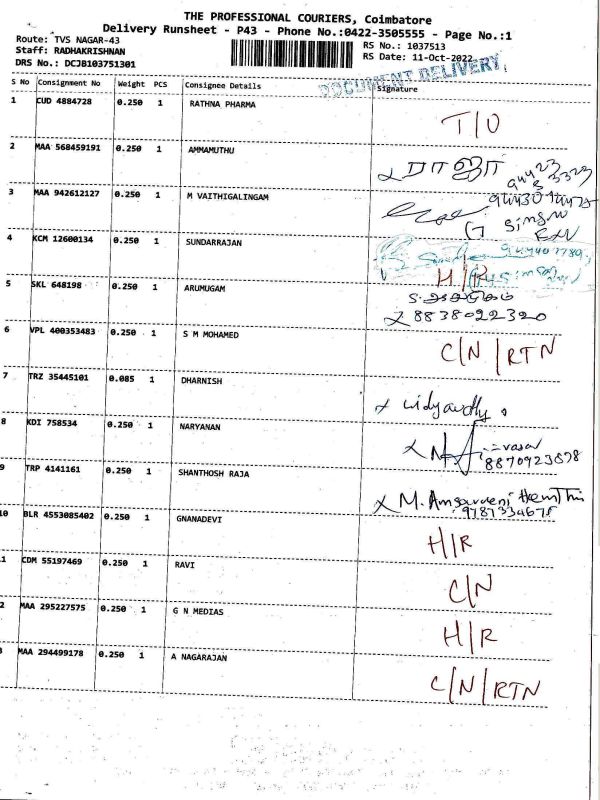 THE PROFESSIONAL COURIERS, Coimbatore
Delivery Runsheet - P43 - Phone No.:0422-3505555 - Page No.:1
Route: TVS NAGAR-43
RS No.: 1037513
Staff: RADHAKRISHNAN
RS Date: 11-Oct-2022
DRS No.: DCJB103751301
DOCUMENT DELIVERY
S No Consignment No Weight PCS Consignee Details Signature
1 CUD 4884728 0.250 1 RATHNA PHARMA T/O
2 MAA 568459191 0.250 1 AMMAMUTHU ராஜா
3 MAA 942612127 0.250 1 M VAITHIGALINGAM
4 KCM 12600134 0.250 1 SUNDARRAJAN H/R
5 SKL 648198 0.250 1 ARUMUGAM
8838022320
6 VPL 400353483 0.250 1 S M MOHAMED C/N/RTN
7 TRZ 35445101 0.085 1 DHARNISH
8 KDI 758534 0.250 1 NARYANAN
9 TRP 4141161 0.250 1 SHANTHOSH RAJA
10 BLR 4553085402 0.250 1 GNANADEVI H/R
1 CDM 55197469 0.250 1 RAVI C/N
2 MAA 295227575 0.250 1 G N MEDIAS H/R
3 MAA 294499178 0.250 1 A NAGARAJAN C/N/RTN